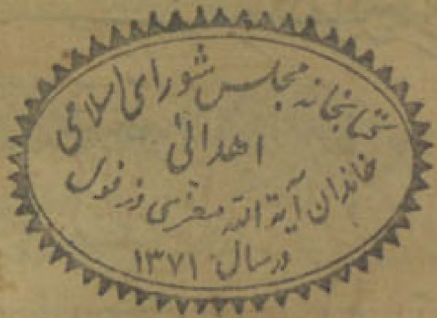 کتابخانه مجلس شورای اسلامی
اهدائی
خاندان آیة الله معزی دزفول
در سال: ۱۳۷۱